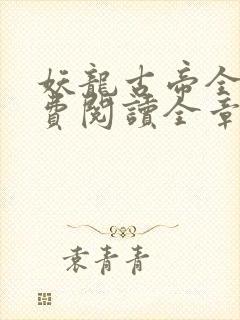 妖龍古帝全
費閱讀全章
袁青青